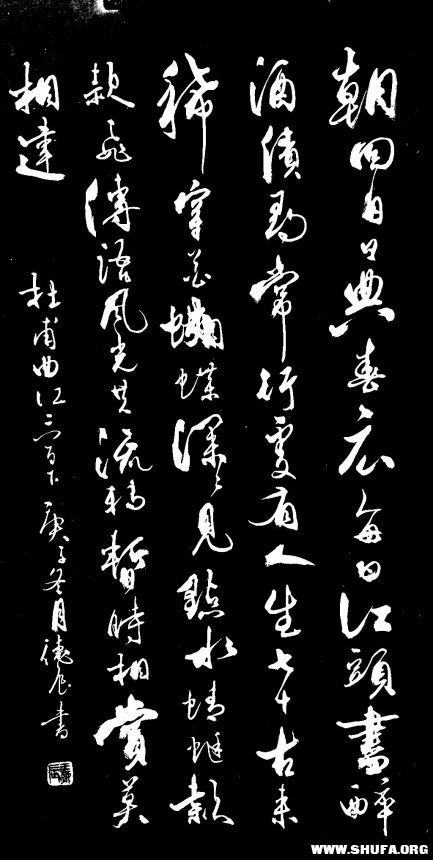 朝回日日典春衣每日江頭盡醉
酒債尋常行處有人生七十古來
稀穿花蝴蝶深深見點水蜻蜓款
款飛傳語風光共流轉暫時相賞莫
相違
杜甫曲江二首 庚子冬月德書
WWW.SHUFA.ORG